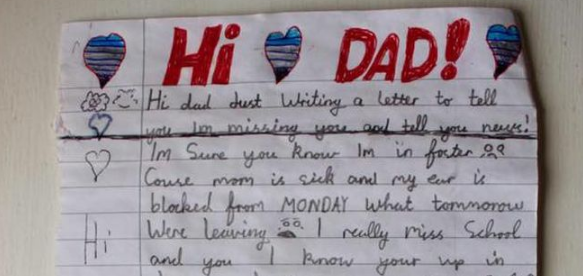 Hi DAD!
Hi dad Just Writing a letter to tell
you Im missing you and tell you news!
Im Sure you know Im in foster
Couse mom is sick and my ear is
blocked from MONDAY what tommorow
Were leaving I really miss School
Hi
and you I know your up in